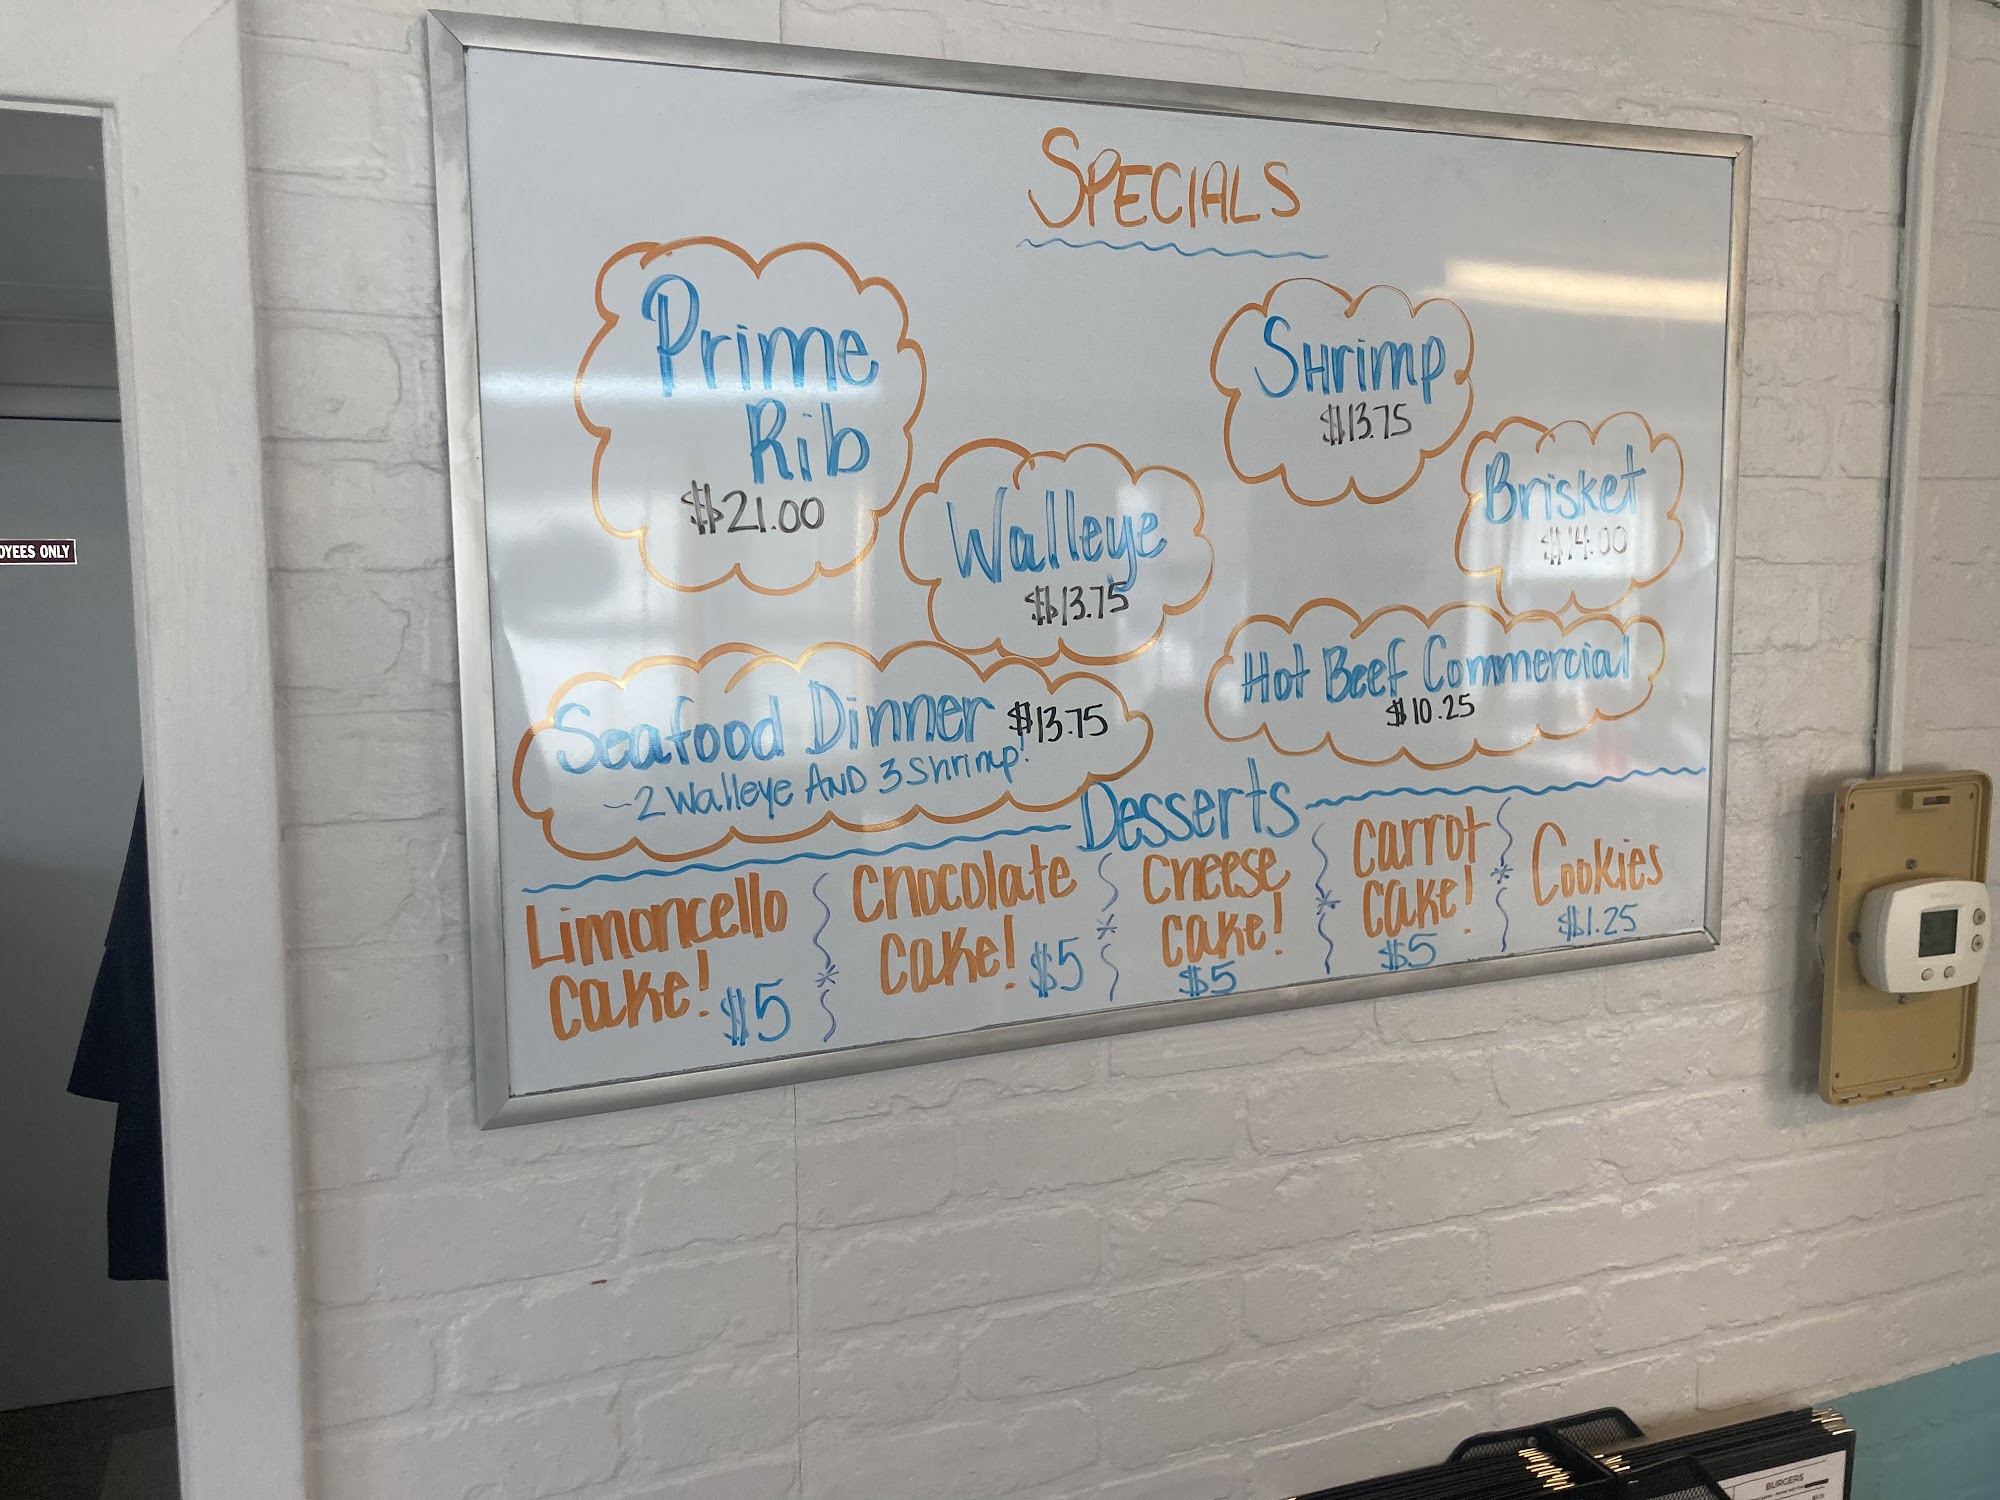 SPECIALS
Prime
Rib
$21.00
Walleye
$13.75
SHrimp
$13.75
Brisket
$14.00
Seafood Dinner $13.75
-2 Walleye AND 3 Shrimp!
Hot Beef Commercial
$10.25
Desserts
Limoncello
cake! $5
chocolate
cake! $5
cheese
cake!
$5
carrot
cake!
$5
Cookies
$1.25
OYEES ONLY
BURGERS